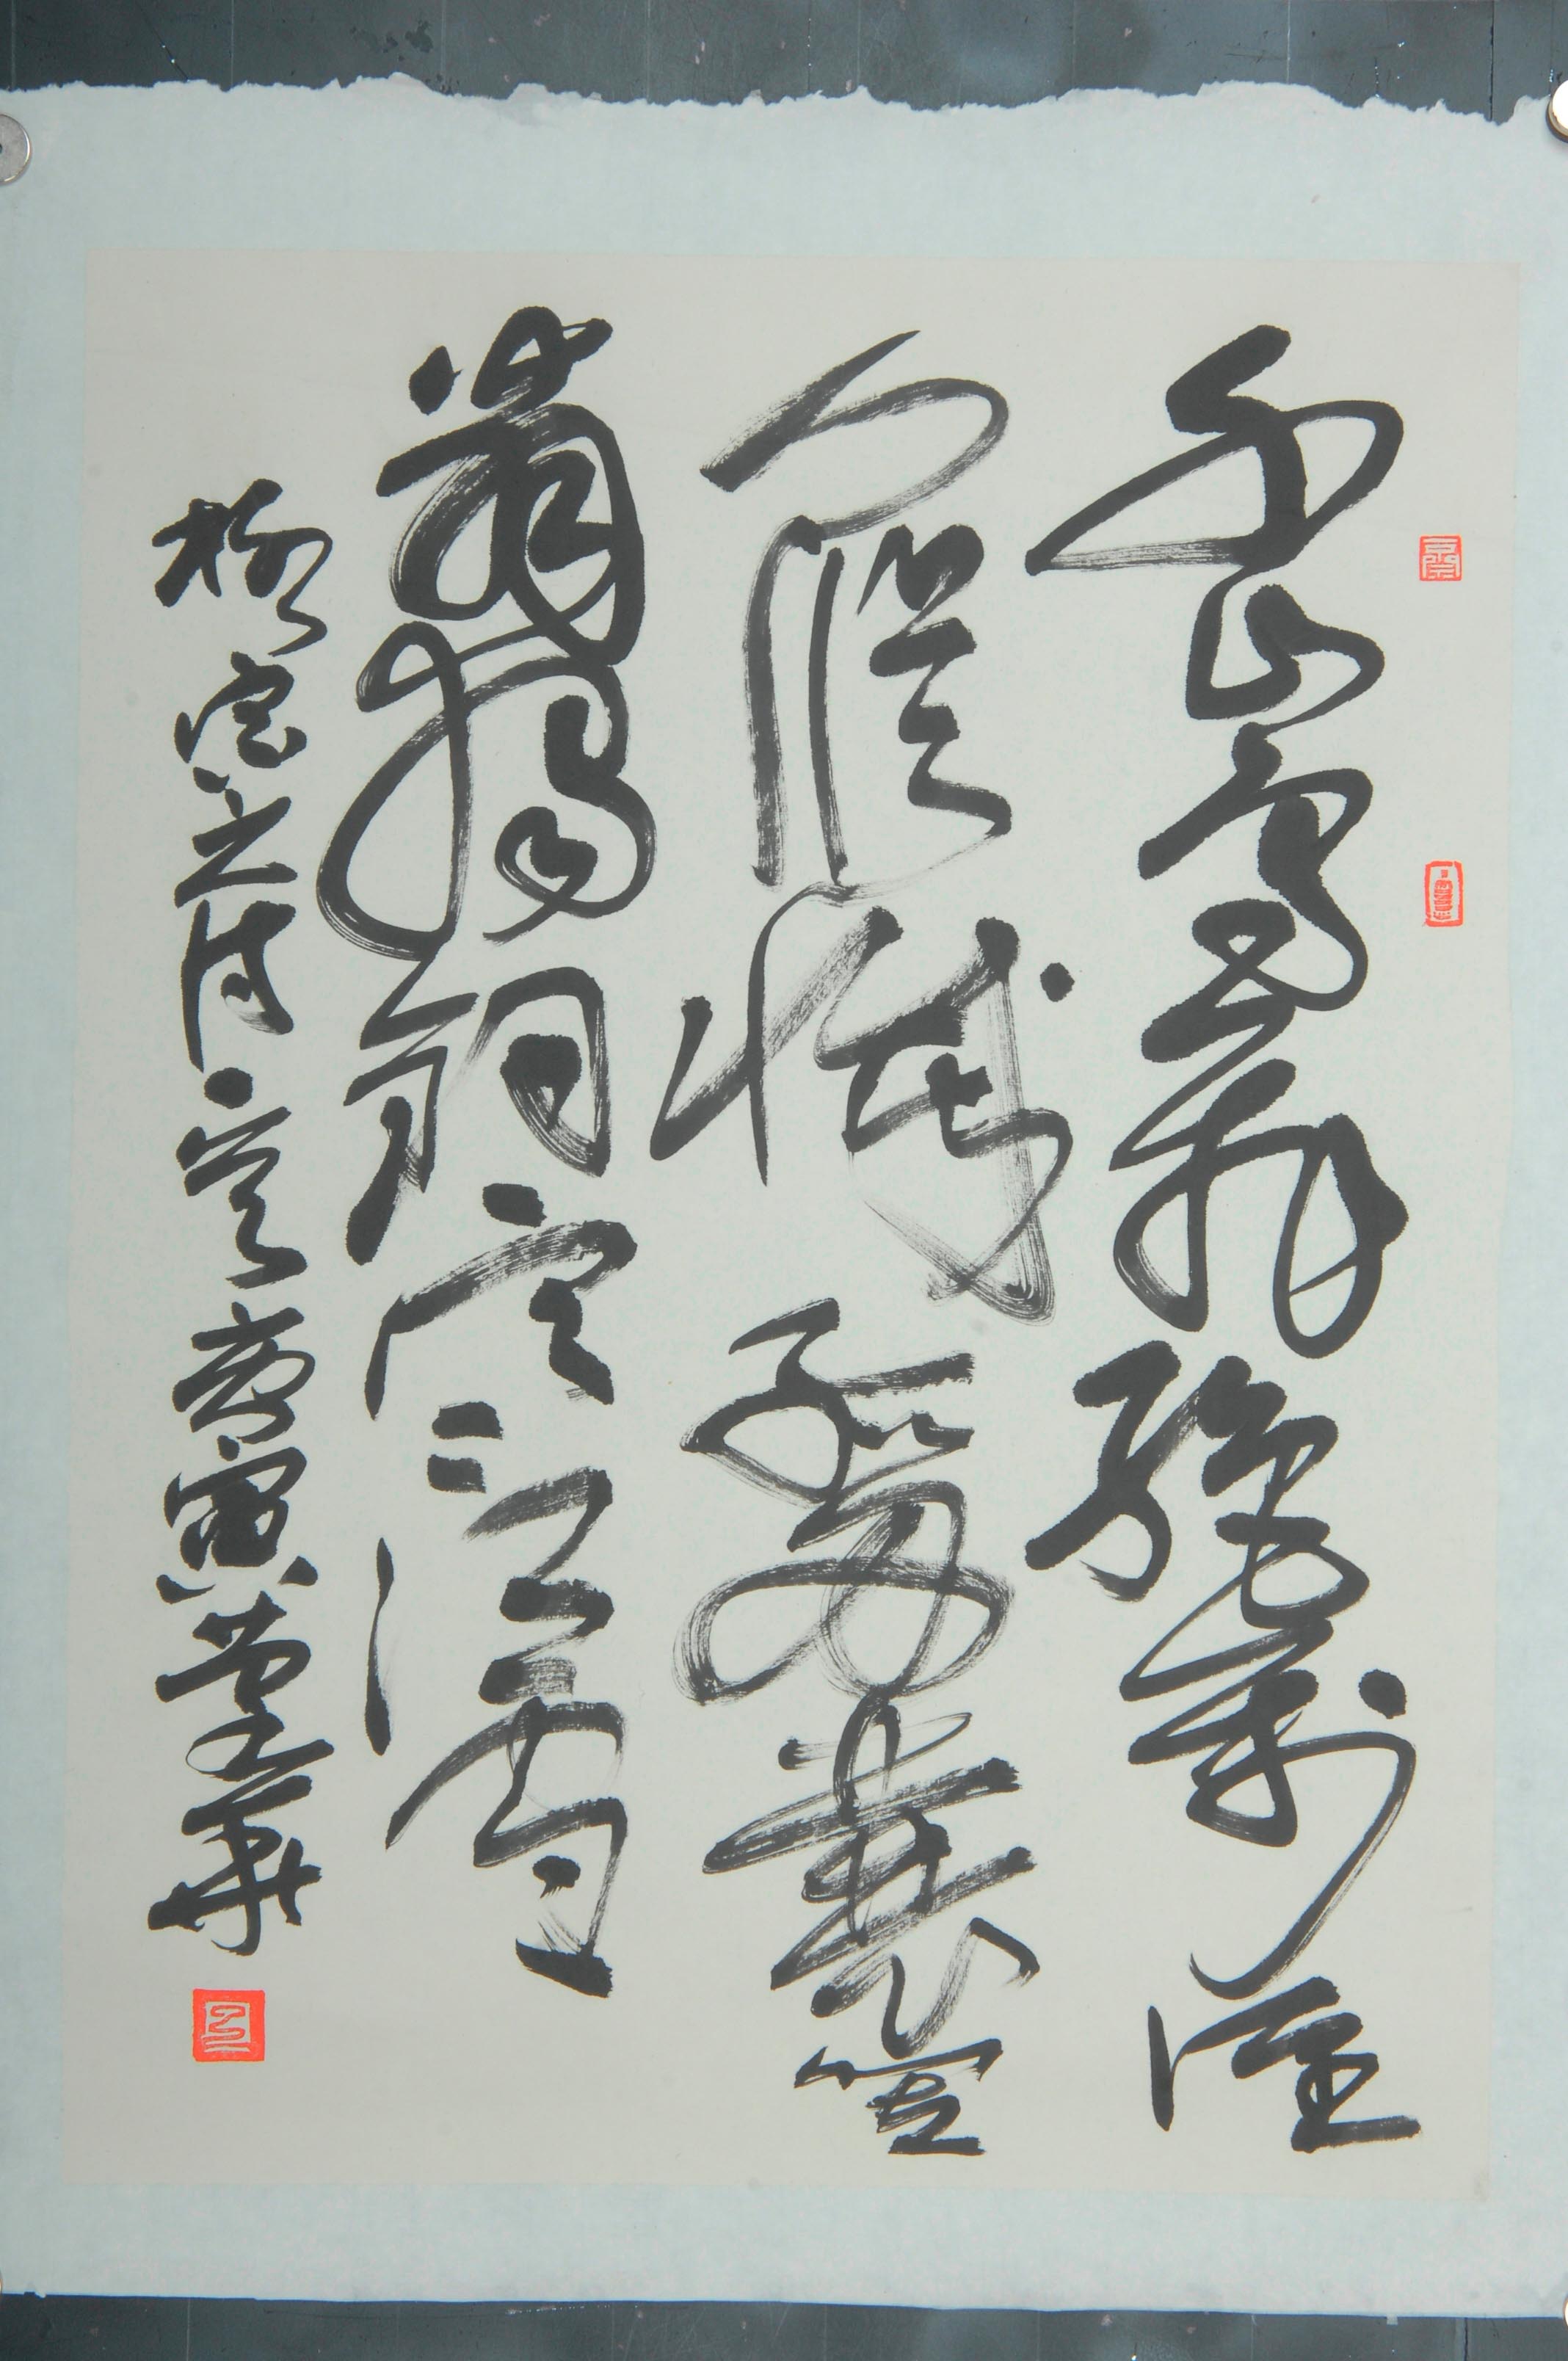 千山鳥飛絕萬徑
人蹤滅孤舟蓑笠
翁獨釣寒江雪
柳宗元詩 庚寅 華